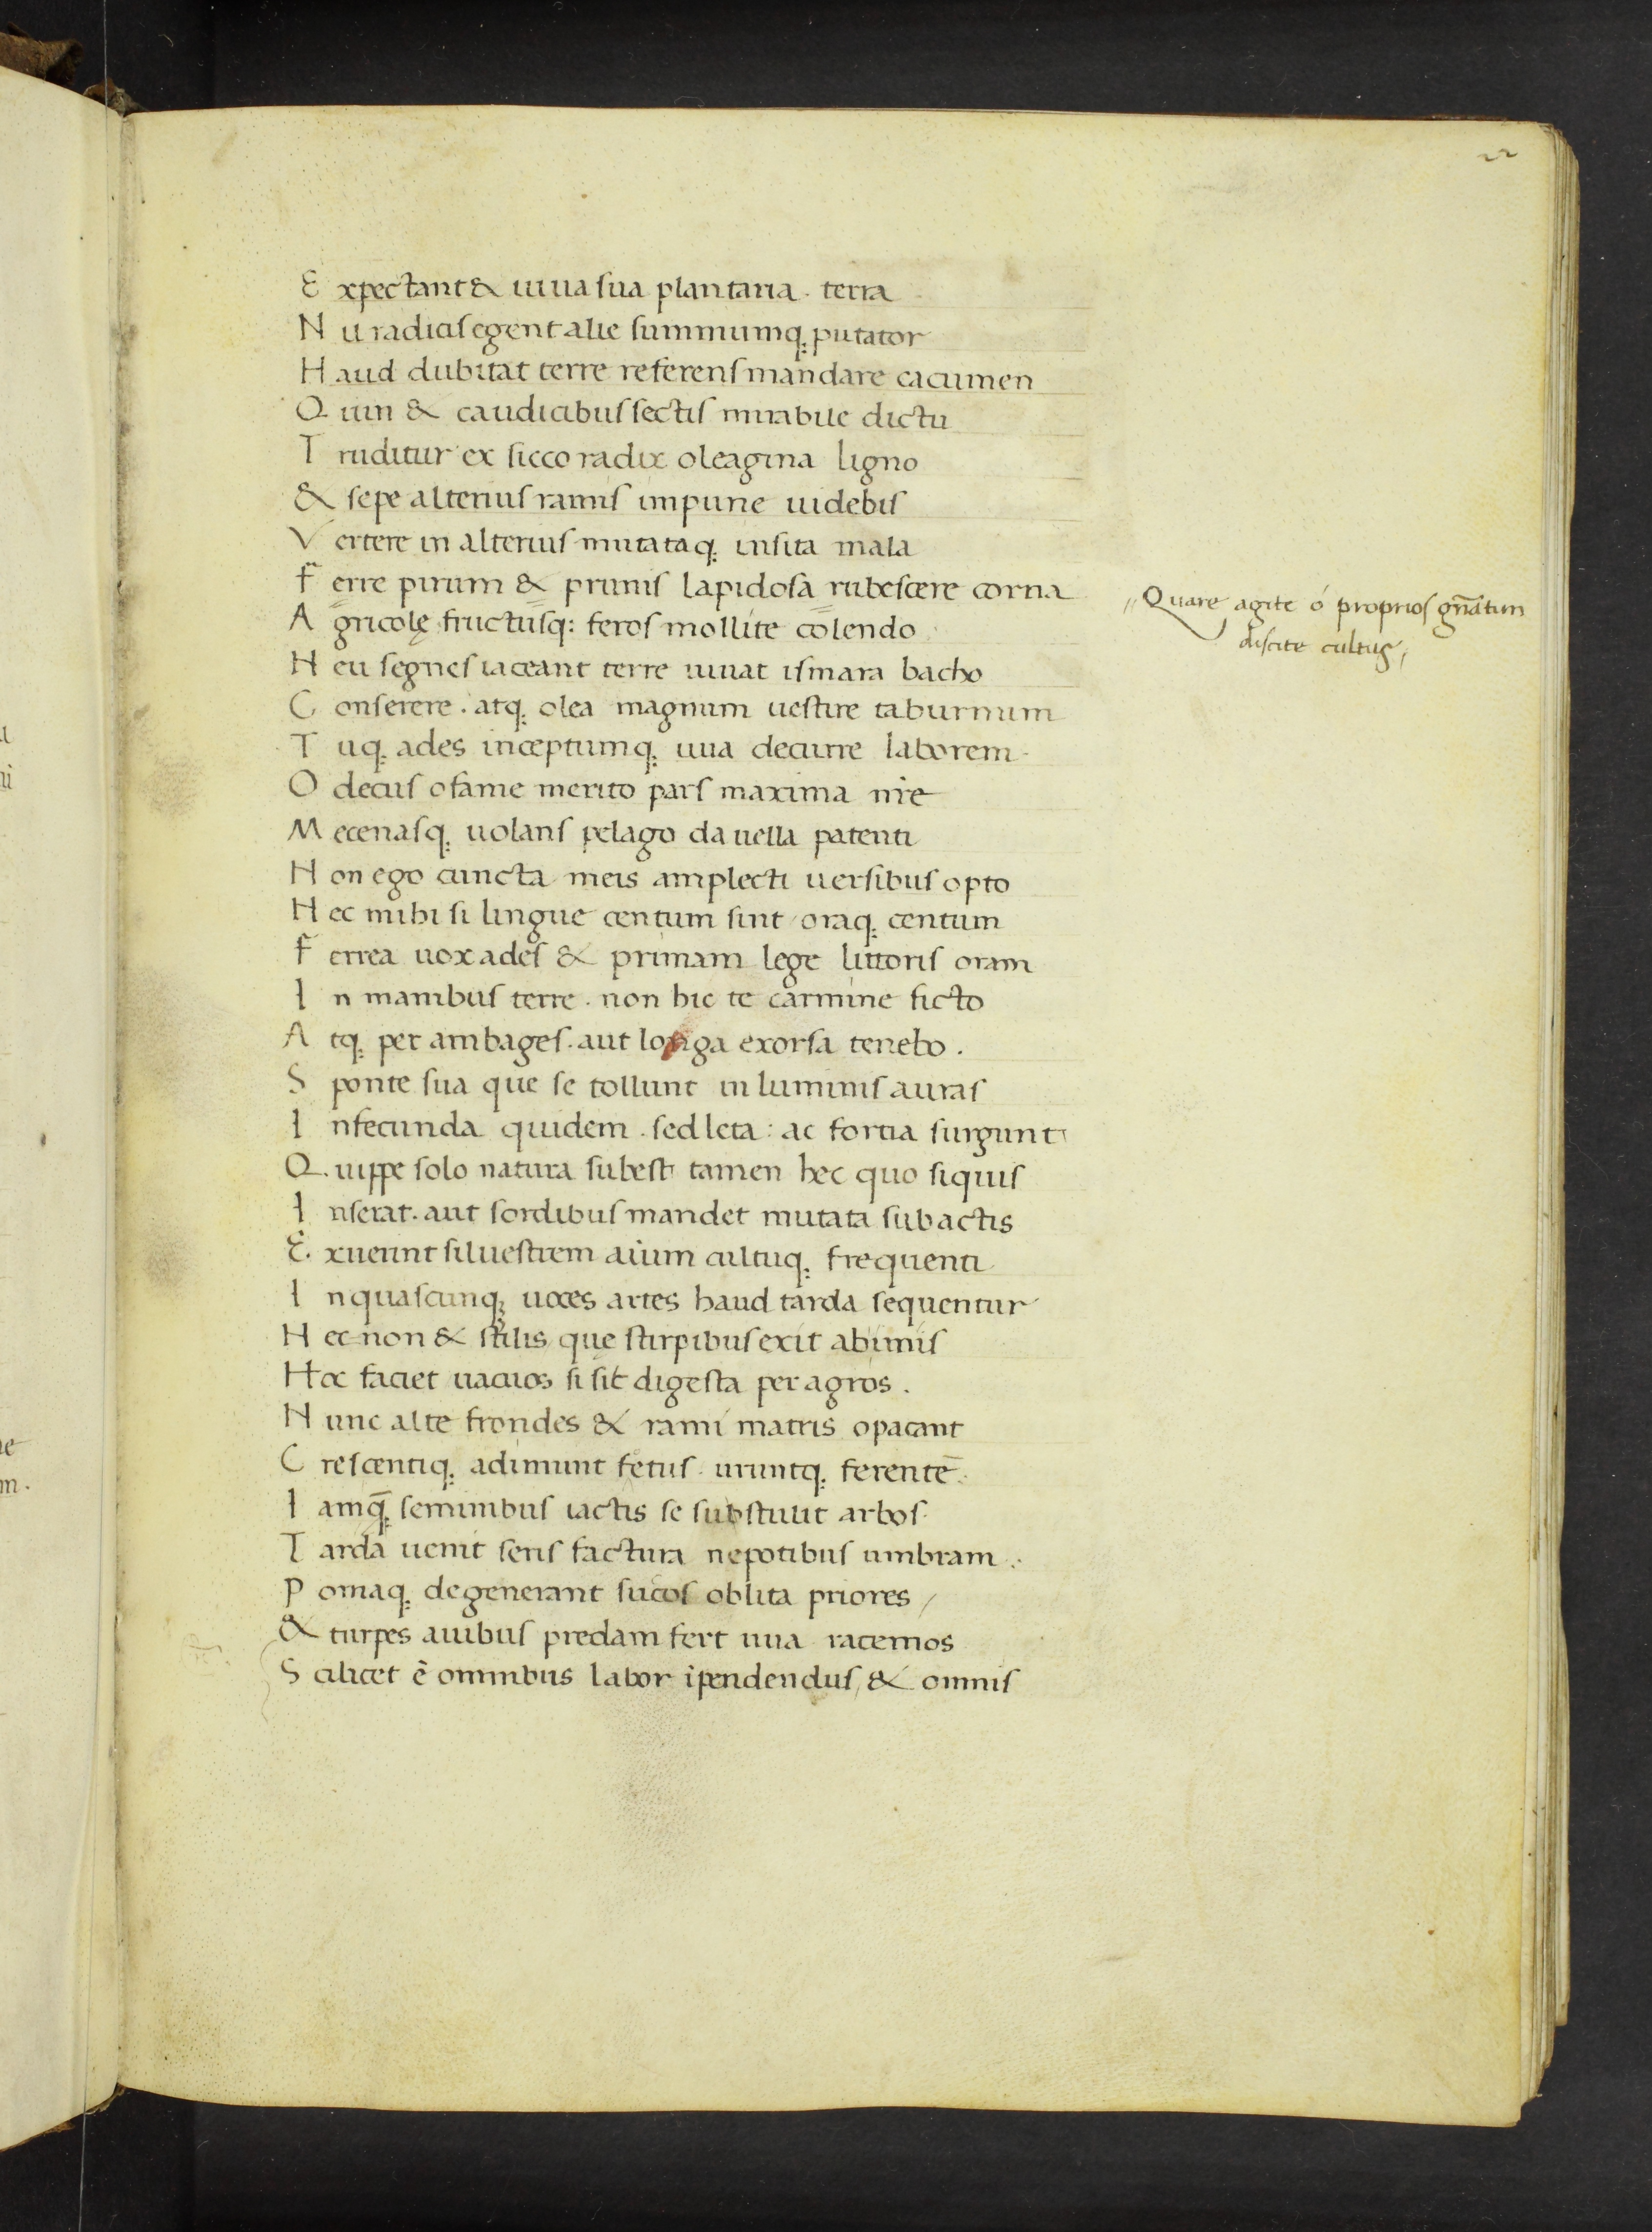 22
Expectant & uiua sua plantaria . terra
Nil radicis egent alie summumq; putator
Haud dubitat terre referens mandare cacumen
Quin & caudicibus sectis mirabile dictu
Truditur ex sicco radix oleagina ligno
& sepe alterius ramis impune uidebis
Vertere in alterius mutataq; insita mala
Ferre pirum & prunis lapidosa rubescere corna
Quare agite ó proprios gñatim
discite cultus
Agricolę fructusq: feros mollite colendo
Neu segnes iaceant terre iuuat ismara bacho
Conserere . atq; olea magnum uestire taburnum
Tuq; ades inceptumq; una decurre laborem .
O decus o fame merito pars maxima nr̄e
Mecenasq; uolans pelago da uella patenti
Non ego cuncta meis amplecti uersibus opto
Nec mihi si lingue centum sint oraq; centum
Ferrea uox ades & primam lege littoris oram
In manibus terre . non hic te carmine ficto
Atq; per ambages . aut longa exorsa tenebo .
Sponte sua que se tollunt in luminis auras
Infecunda quidem . sed leta : ac fortia surgunt
Quippe solo natura subest tamen hec quo siquis
Inserat . aut scrobibus mandet mutata subactis
Exuerint siluestrem aīum cultuq; frequenti
In quascunq; uoces artes haud tarda sequentur
Nec non & stilis que stirpibus exit ab imis
Hoc faciet uacuos si sit digesta per agros .
Nunc alte frondes & rami matris opacant
Crescentiq; adimunt fetus uruntq; ferentē .
Iamq̄; seminibus iactis se substulit arbos .
Tarda uenit seris factura nepotibus umbram .
Pomaq; degenerant sucos oblita priores
& turpes auibus predam fert uua racemos
Scilicet ē omnibus labor īpendendus, & omnis